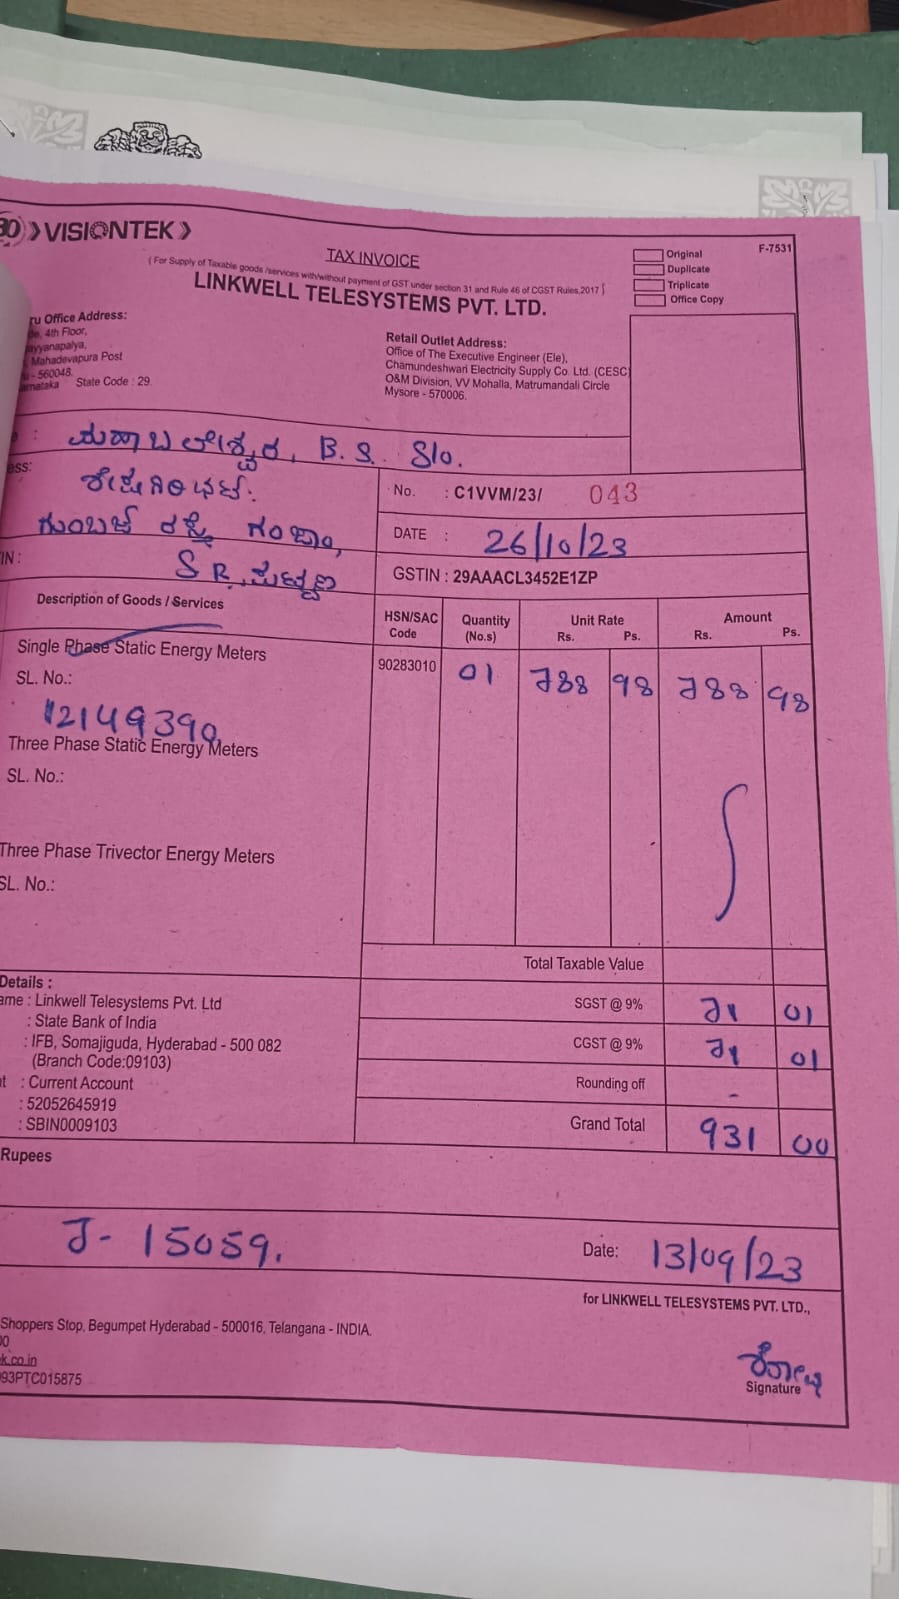 VISIONTEK
TAX INVOICE
( For Supply of Taxable goods /services with/without payment of GST under section 31 and Rule 46 of CGST Rules,2017 )
LINKWELL TELESYSTEMS PVT. LTD.
Original
Duplicate
Triplicate
Office Copy
F-7531
ru Office Address:
4th Floor,
ayyanapalya,
Mahadevapura Post
- 560048.
State Code : 29
Retail Outlet Address:
Office of The Executive Engineer (Ele),
Chamundeshwari Electricity Supply Co. Ltd. (CESC)
O&M Division, VV Mohalla, Matrumandali Circle
Mysore - 570006.
ಮಹಾಬಲೇಶ್ವರ, B.S. S/o.
ess:
ಶೇಷಗಿರಿಭಟ್.
ಗುಂಬಜ್ ರಸ್ತೆ ಗಂಜಾಂ,
IN :
S R,
No. : C1VVM/23/ 043
DATE : 26/10/23
GSTIN : 29AAACL3452E1ZP
Description of Goods / Services
HSN/SAC Code
Quantity (No.s)
Unit Rate
Rs. Ps.
Amount
Rs. Ps.
Single Phase Static Energy Meters
90283010 01 788 98 788 98
SL. No.:
12149390
Three Phase Static Energy Meters
SL. No.:
Three Phase Trivector Energy Meters
SL. No.:
Total Taxable Value
SGST @ 9% 71 01
CGST @ 9% 71 01
Rounding off -
Grand Total 931 00
Details :
ame : Linkwell Telesystems Pvt. Ltd
: State Bank of India
: IFB, Somajiguda, Hyderabad - 500 082
(Branch Code:09103)
t : Current Account
: 52052645919
: SBIN0009103
Rupees
J- 15059.
Date: 13/09/23
for LINKWELL TELESYSTEMS PVT. LTD.,
Shoppers Stop, Begumpet Hyderabad - 500016, Telangana - INDIA.
00
k.co.in
93PTC015875
Signature